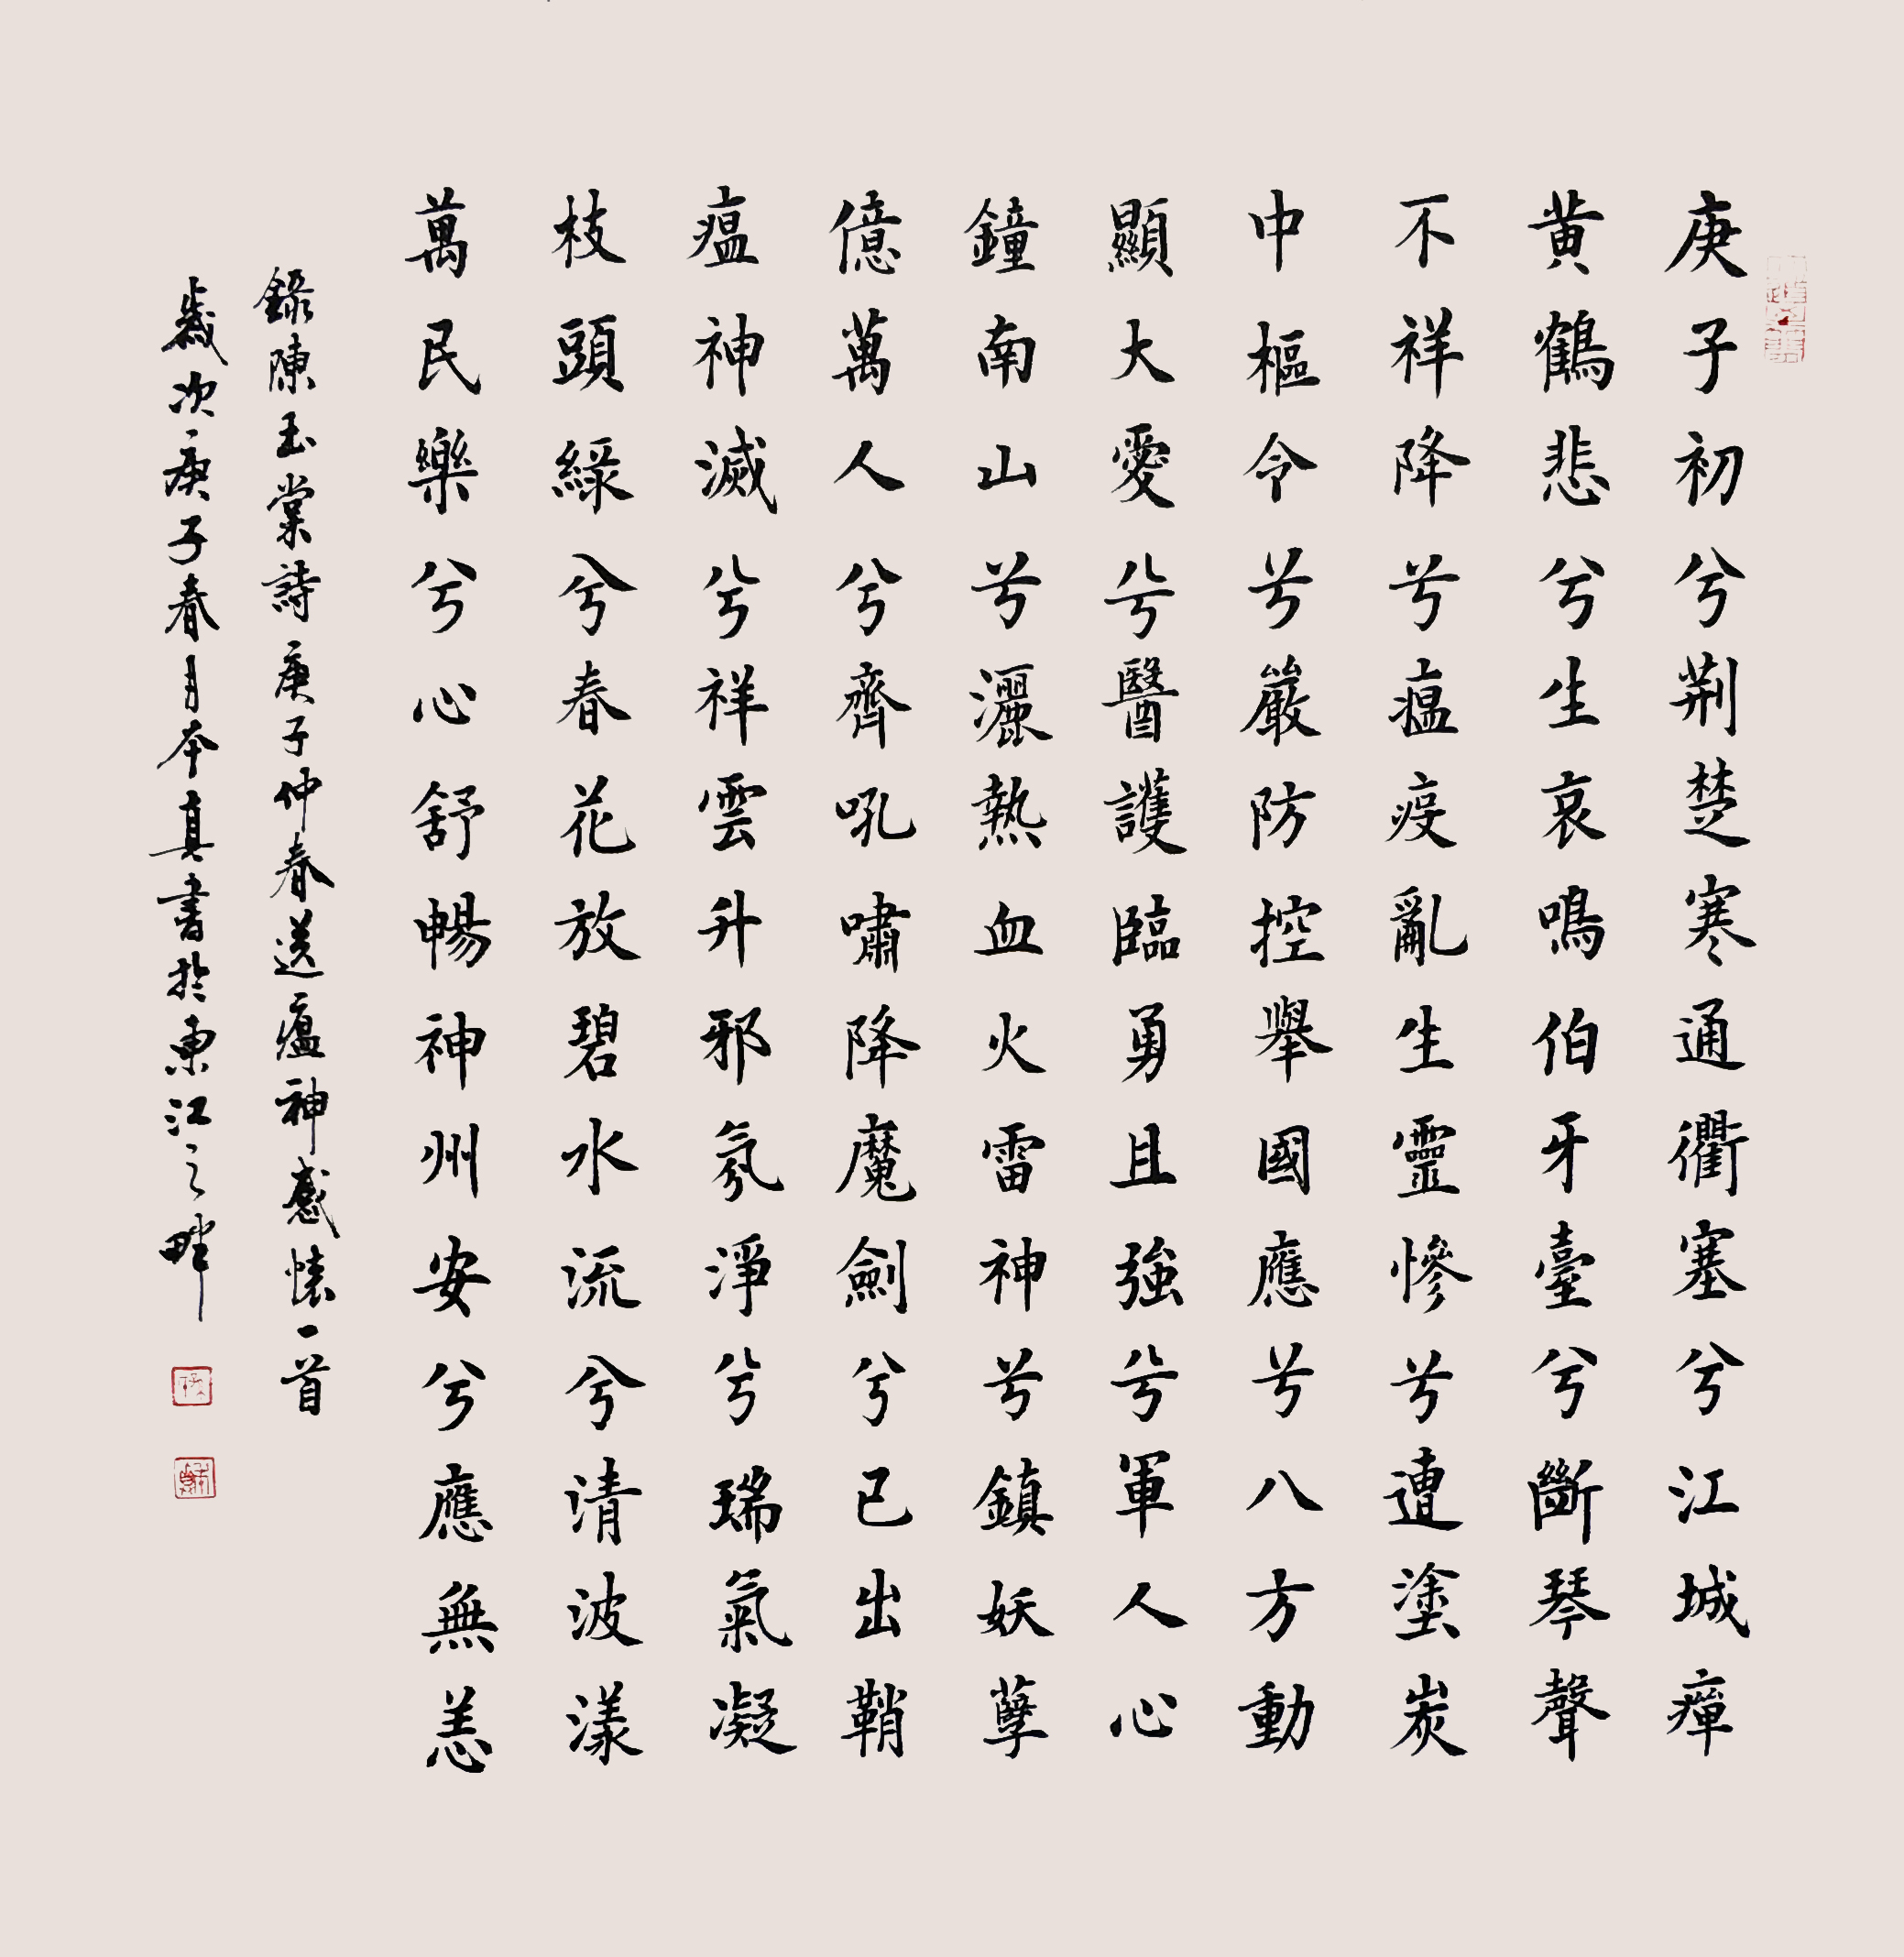 庚子初兮荆楚寒通衢塞兮江城瘴
黄鶴悲兮生哀鳴伯牙臺兮斷琴聲
不祥降兮瘟疫亂生靈慘兮遭塗炭
中樞令兮嚴防控舉國應兮八方動
顯大愛兮醫護臨勇且強兮軍人心
鐘南山兮灑熱血火雷神兮鎮妖孽
億萬人兮齊吼嘯降魔劍兮已出鞘
瘟神滅兮祥雲升邪氛淨兮瑞氣凝
枝頭綠兮春花放碧水流兮清波漾
萬民樂兮心舒暢神州安兮應無恙
錄陳玉棠詩庚子仲春送瘟神感懷一首
歲次庚子春月本真書於東江之畔